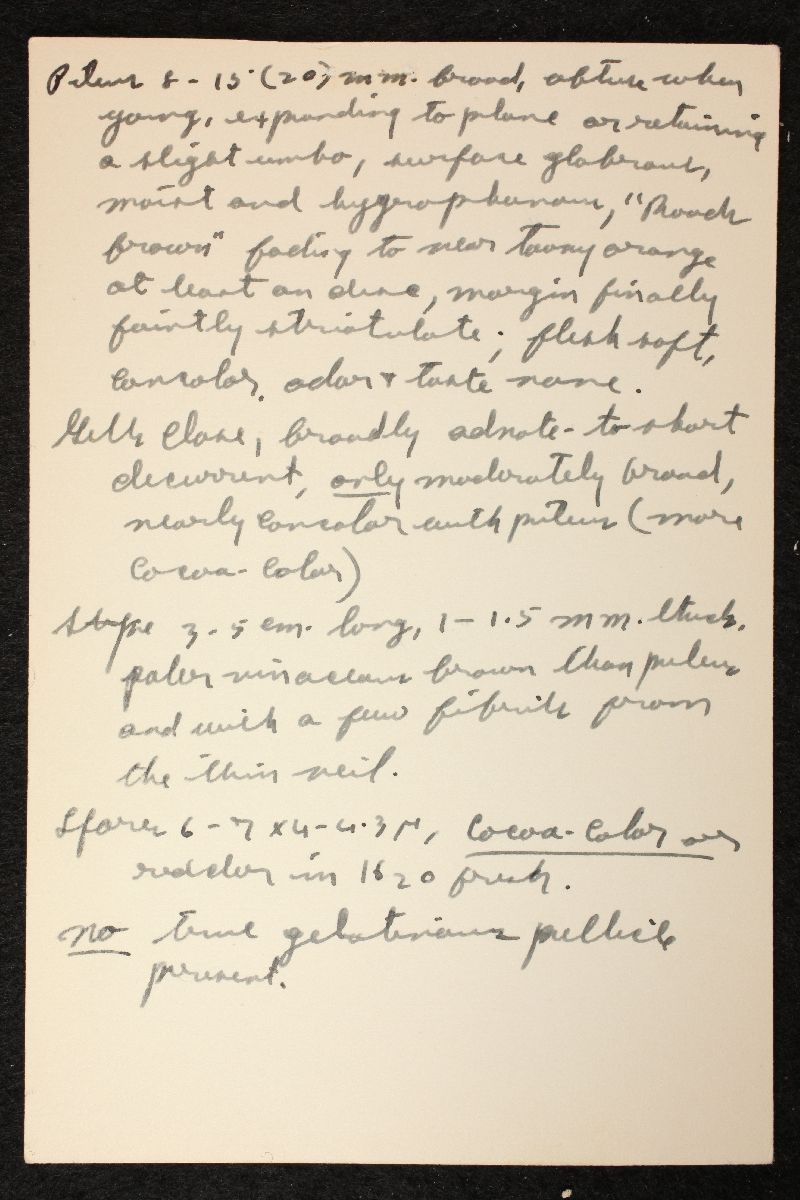 Pileus 8-15 (20) mm. broad, obtuse when
young, expanding to plane or retaining
a slight umbo, surface glabrous,
moist and hygrophanous, "Roods
brown" fading to near tawny orange
at least on disc, margin finally
faintly striatulate; flesh soft,
concolor, odor + taste none.
Gills close, broadly adnate- to short
decurrent, only moderately broad,
nearly concolor with pileus (more
cocoa-color)
Stipe 3-5 cm. long, 1-1.5 mm. thick,
paler vinaceous brown than pileus
and with a few fibrils from
the thin veil.
Spores 6-7 x 4-4.3 µ, cocoa-color or
redder in H2O fresh.
no true gelatinous pellicle
present.